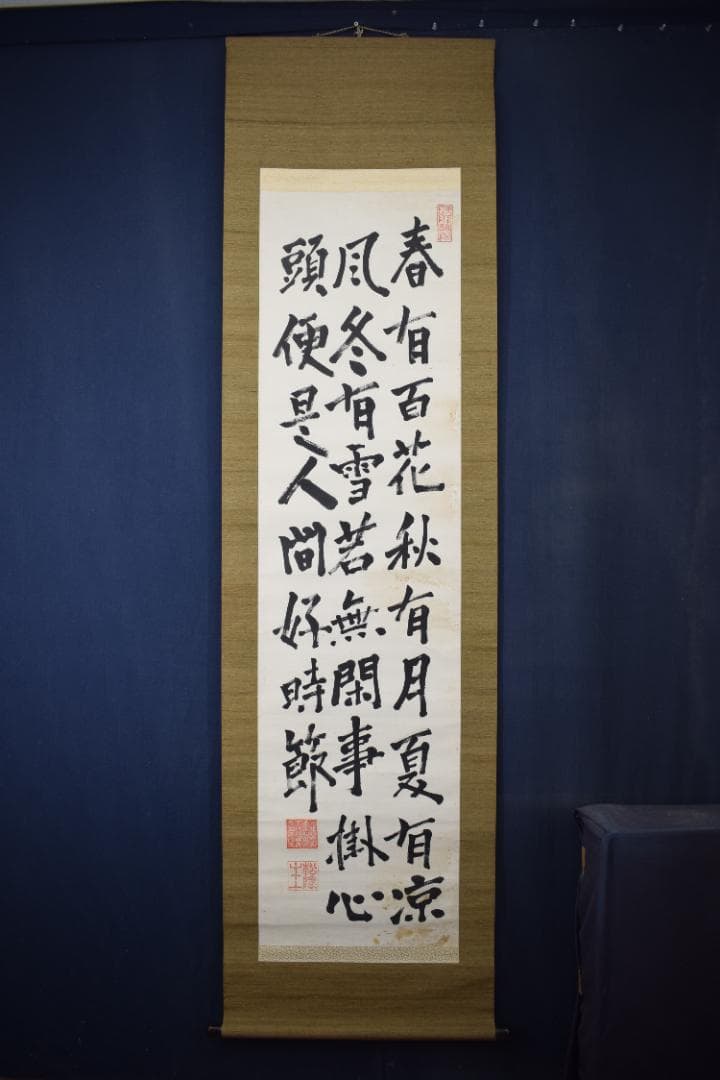 春有百花秋有月夏有凉
風冬有雪若無閑事掛心
頭便是人間好時節